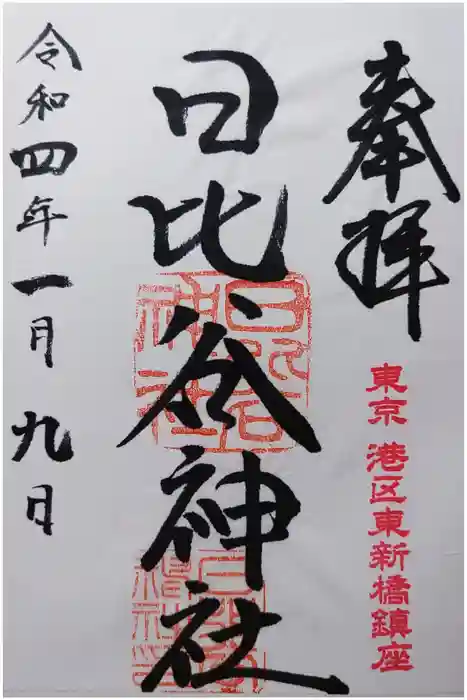 奉拝
東京 港区東新橋鎮座
日比谷神社
令和四年一月九日